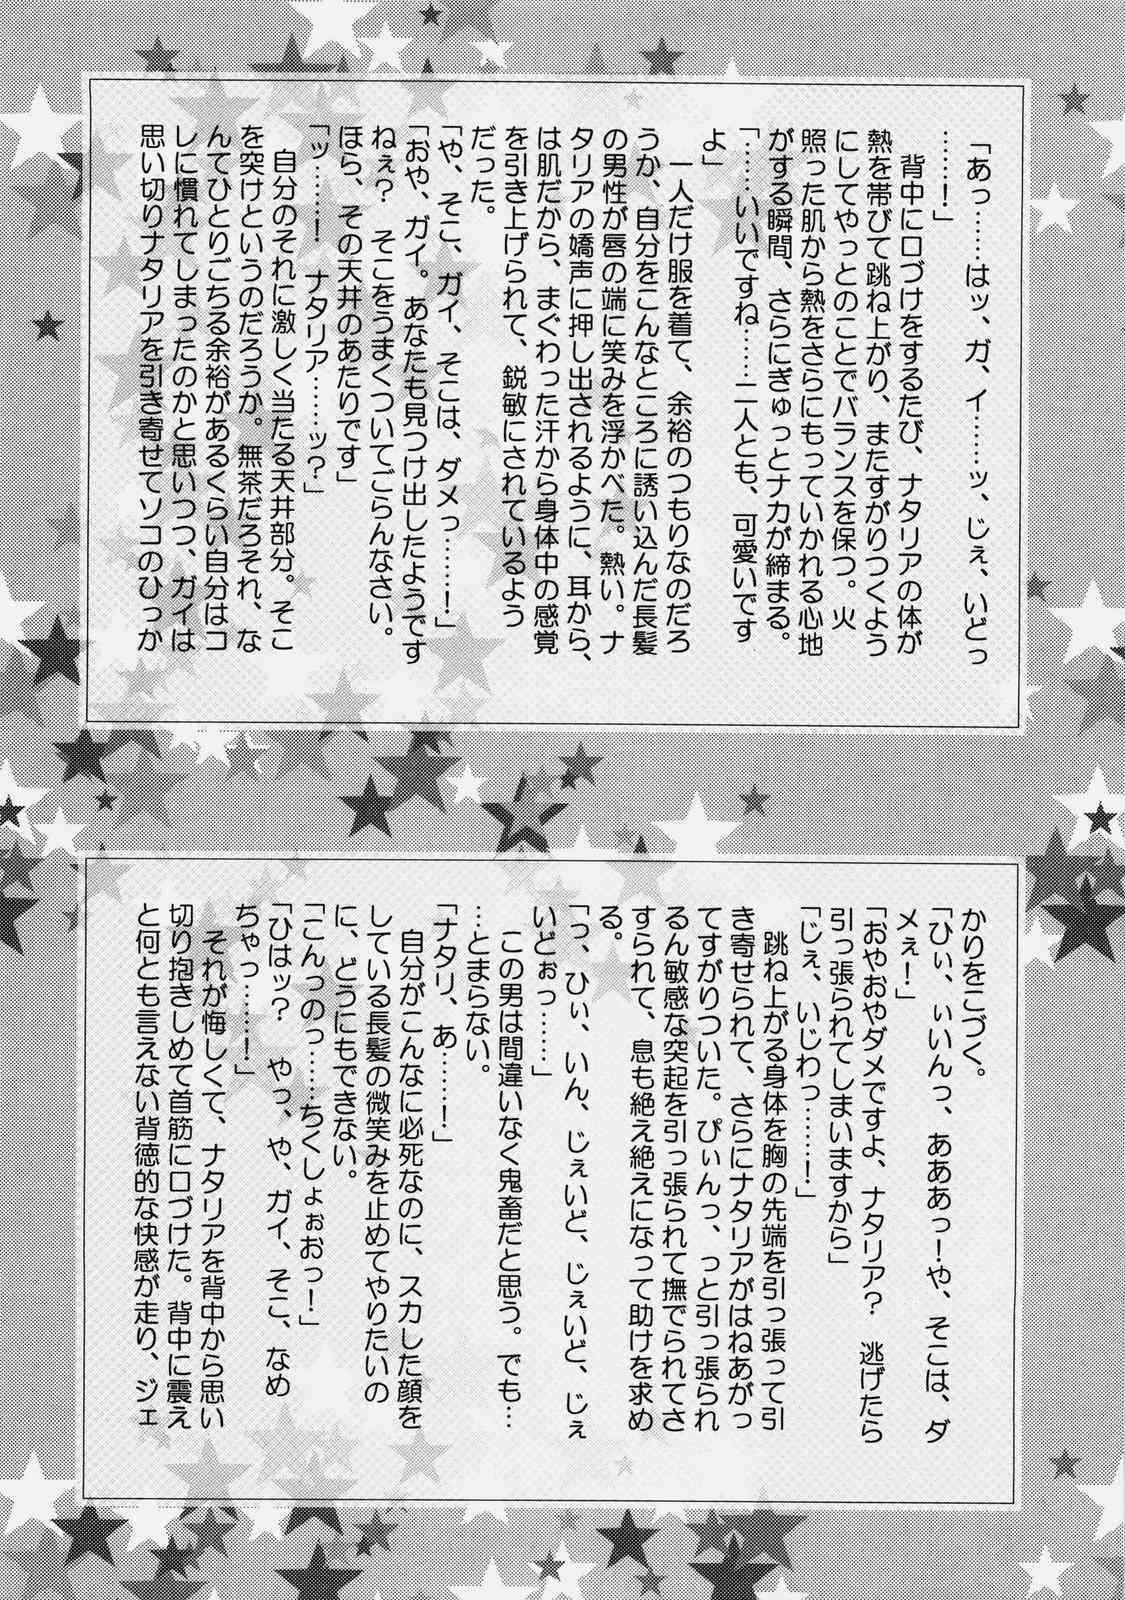 「あっ……はッ、ガ、イ……ッ、じぇ、いどっ
……！」
背中に口づけをするたび、ナタリアの体が
熱を帯びて跳ね上がり、またすがりつくよう
にしてやっとのことでバランスを保つ。火
照った肌から熱をさらにもっていかれる心地
がする瞬間、さらにぎゅっとナカが締まる。
「……いいですね……二人とも、可愛いです
よ」
一人だけ服を着て、余裕のつもりなのだろ
うか、自分をこんなところに誘い込んだ長髪
の男性が唇の端に笑みを浮かべた。熱い。ナ
タリアの嬌声に押し出されるように、耳から、
は肌だから、まぐわった汗から身体中の感覚
を引き上げられて、鋭敏にされているよう
だった。
「や、そこ、ガイ、そこは、ダメっ……！」
「おや、ガイ。あなたも見つけ出したようです
ねぇ？　そこをうまくついてごらんなさい。
ほら、その天井のあたりです」
「ッ……！　ナタリア……ッ？」
自分のそれに激しく当たる天井部分。そこ
を突けというのだろうか。無茶だろそれ、な
んてひとりごちる余裕があるくらい自分はコ
レに慣れてしまったのかと思いつつ、ガイは
思い切りナタリアを引き寄せてソコのひっか
かりをこづく。
「ひぃ、ぃいんっ、あああっ！や、そこは、ダ
メぇ！」
「おやおやダメですよ、ナタリア？　逃げたら
引っ張られてしまいますから」
「じぇ、いじわっ……！」
跳ね上がる身体を胸の先端を引っ張って引
き寄せられて、さらにナタリアがはねあがっ
てすがりついた。ぴぃんっ、っと引っ張られ
るん敏感な突起を引っ張られて撫でられてさ
すられて、息も絶え絶えになって助けを求め
る。
「っ、ひぃ、いん、じぇいど、じぇいど、じぇ
いどぉっ……」
この男は間違いなく鬼畜だと思う。でも…
…とまらない。
「ナタリ、あ……！」
自分がこんなに必死なのに、スカした顔を
している長髪の微笑みを止めてやりたいの
に、どうにもできない。
「こんっのっ……ちくしょぉおっ！」
「ひはッ？　やっ、や、ガイ、そこ、なめ
ちゃっ……！」
それが悔しくて、ナタリアを背中から思い
切り抱きしめて首筋に口づけた。背中に震え
と何とも言えない背徳的な快感が走り、ジェ